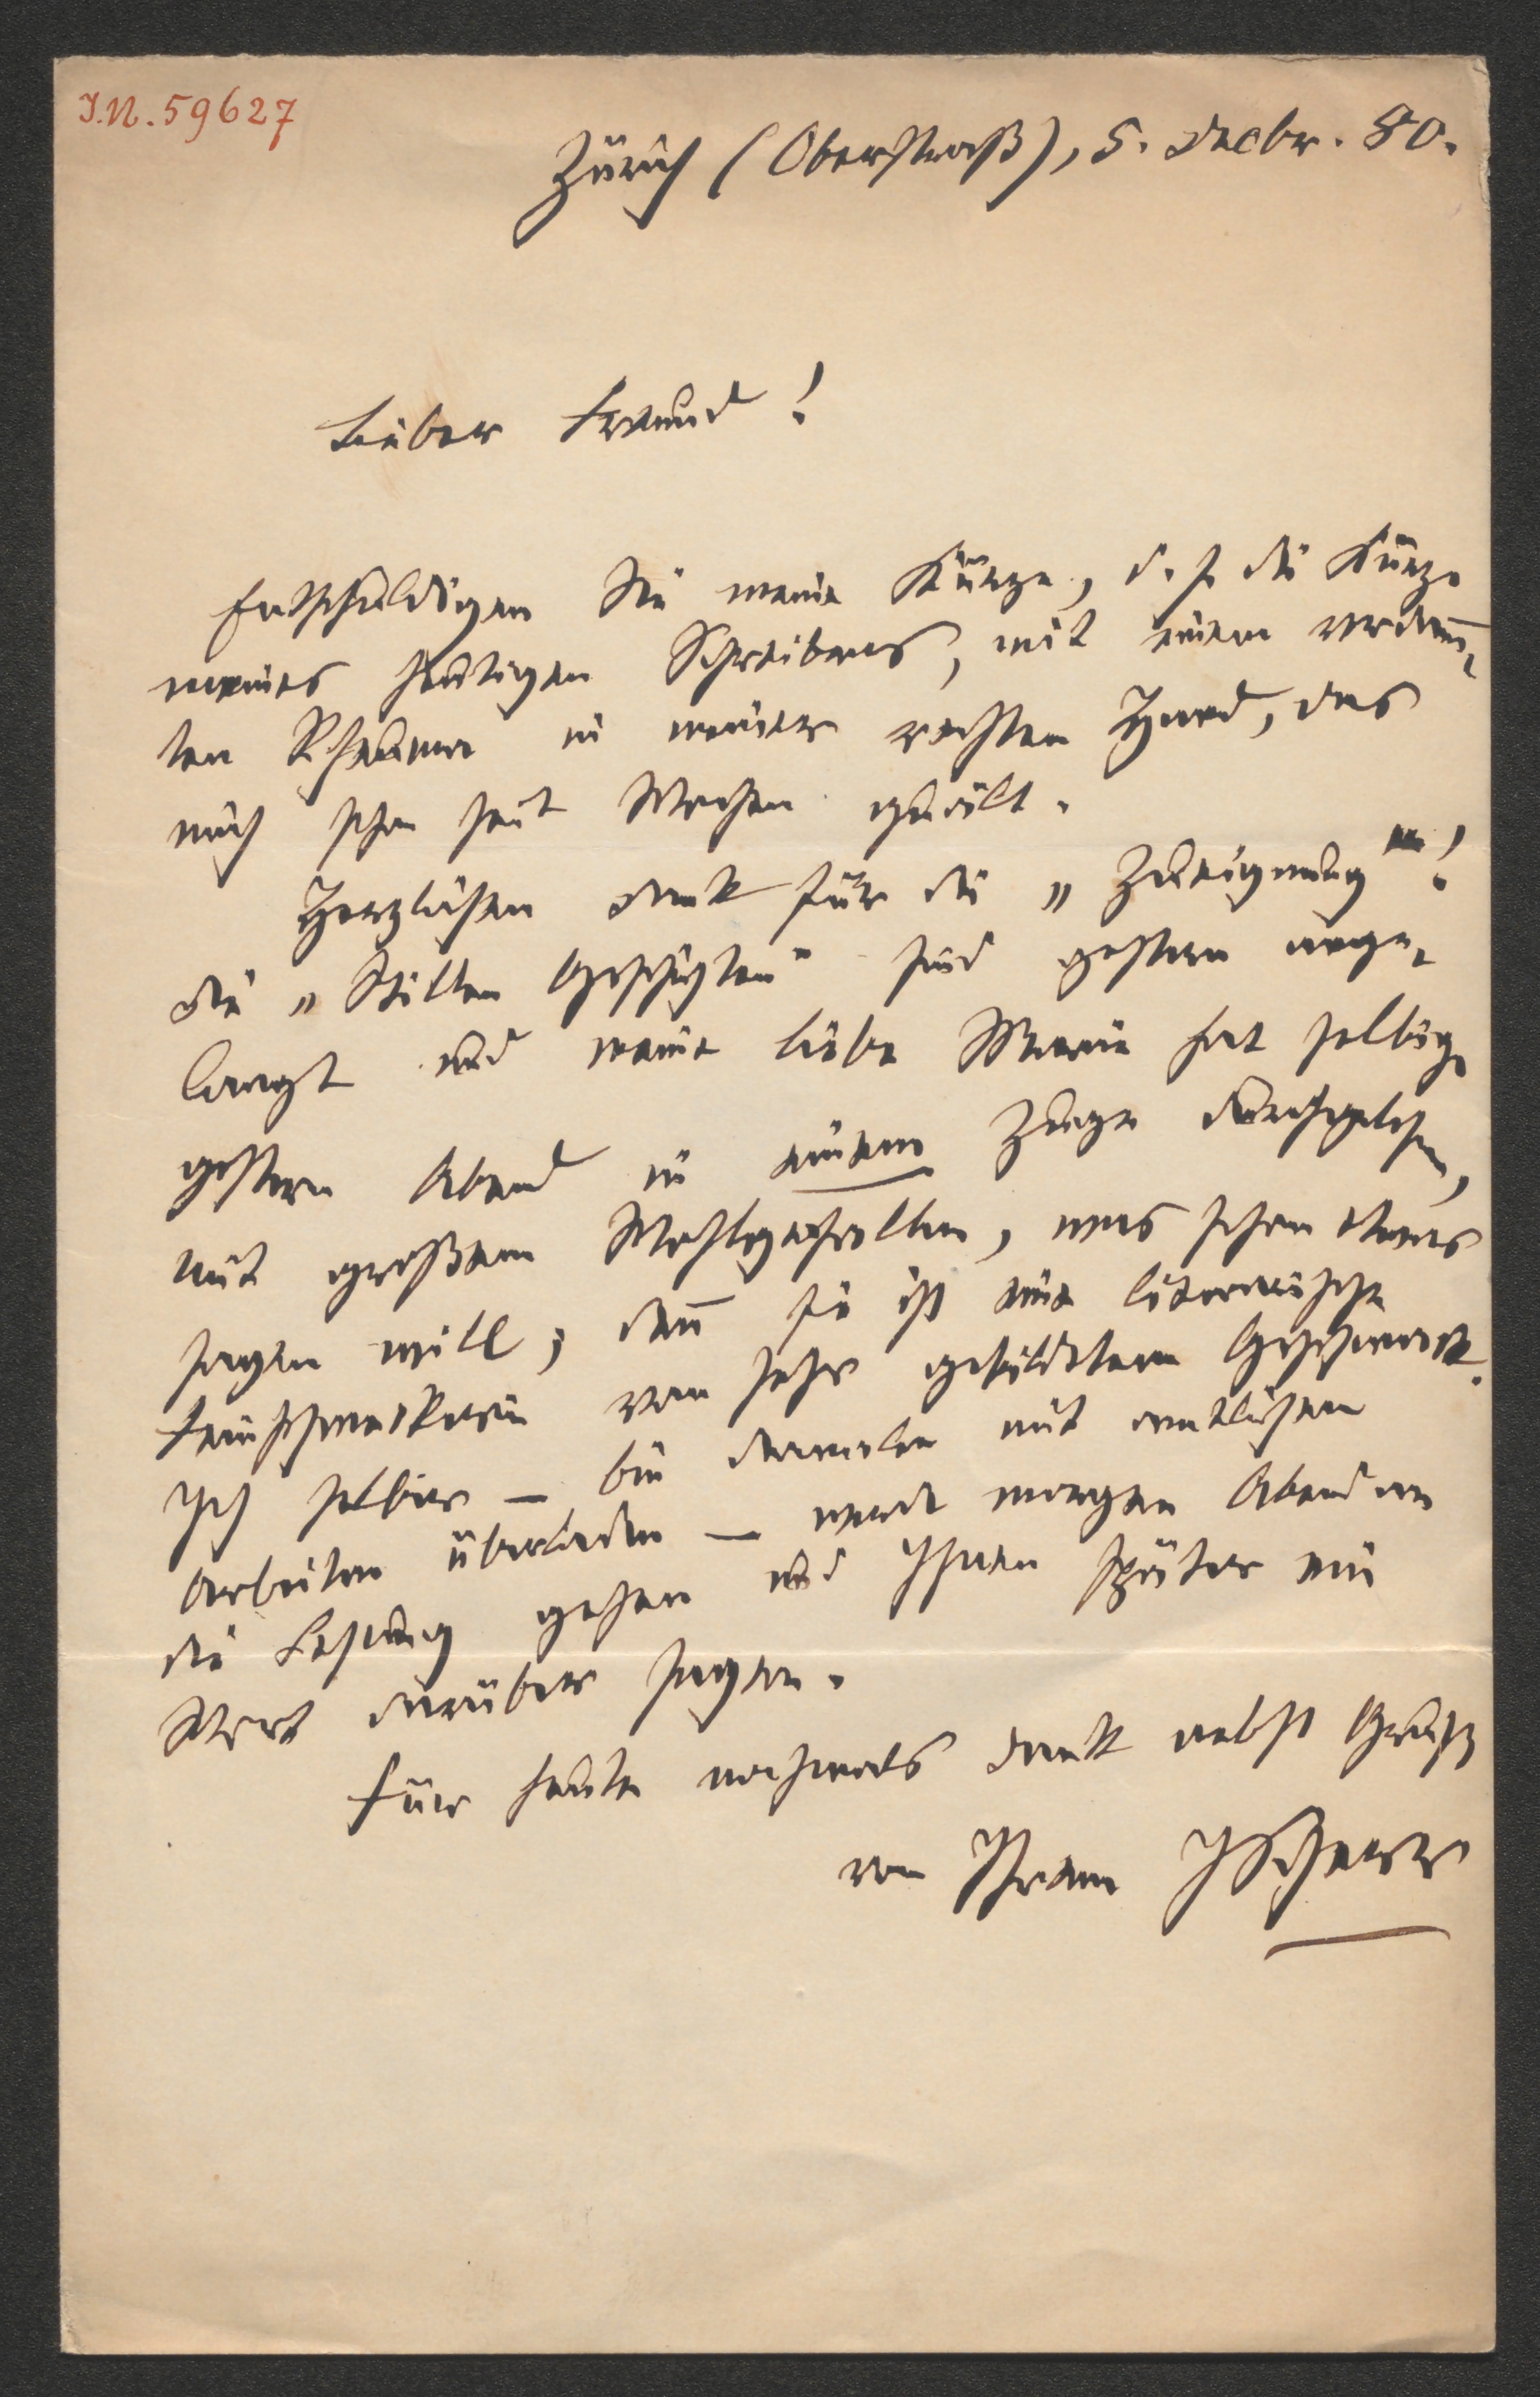 I.N. 59627
Zürich (Oberstraß), 5. Decbr. 80.
Lieber Freund!
Entschuldigen Sie meine Kürze, d. h. die Kürze
meines heutigen Schreibens, mit einem verdamm¬
ten Rheuma in meiner rechten Hand, das
mich schon seit Wochen quält.
Herzlichen Dank für die „Zueignung“!
Die „Stillen Geschichten“ sind gestern ange¬
langt und meine liebe Marie hat selbige
gestern Abend in einem Zuge durchgelesen,
mit großem Wohlgefallen, was schon etwas
sagen will; denn sie ist eine literarische
Feinschmeckerin von sehr gebildetem Geschmack.
Ich selber — bin dermalen mit amtlichen
Arbeiten überladen — werde morgen Abend an
die Lesung gehen und Ihnen später ein
Wort darüber sagen.
Für heute nochmals Dank nebst Gruß
von Ihrem JScherr